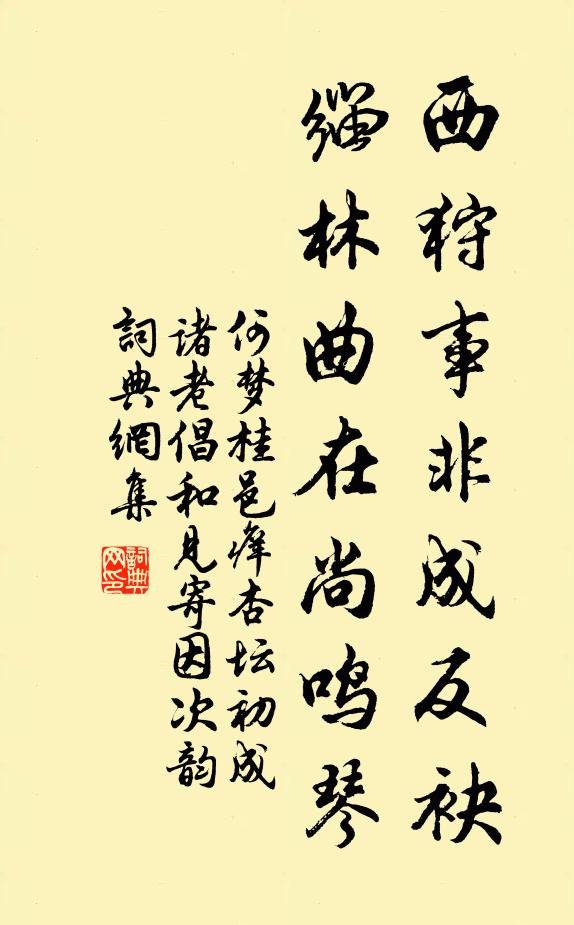 西狩事非成反袂
缁林曲在尚鸣琴
何梦桂邑痒杏坛初成
诸老倡和见寄因次韵
詞典網集
詞典
网印